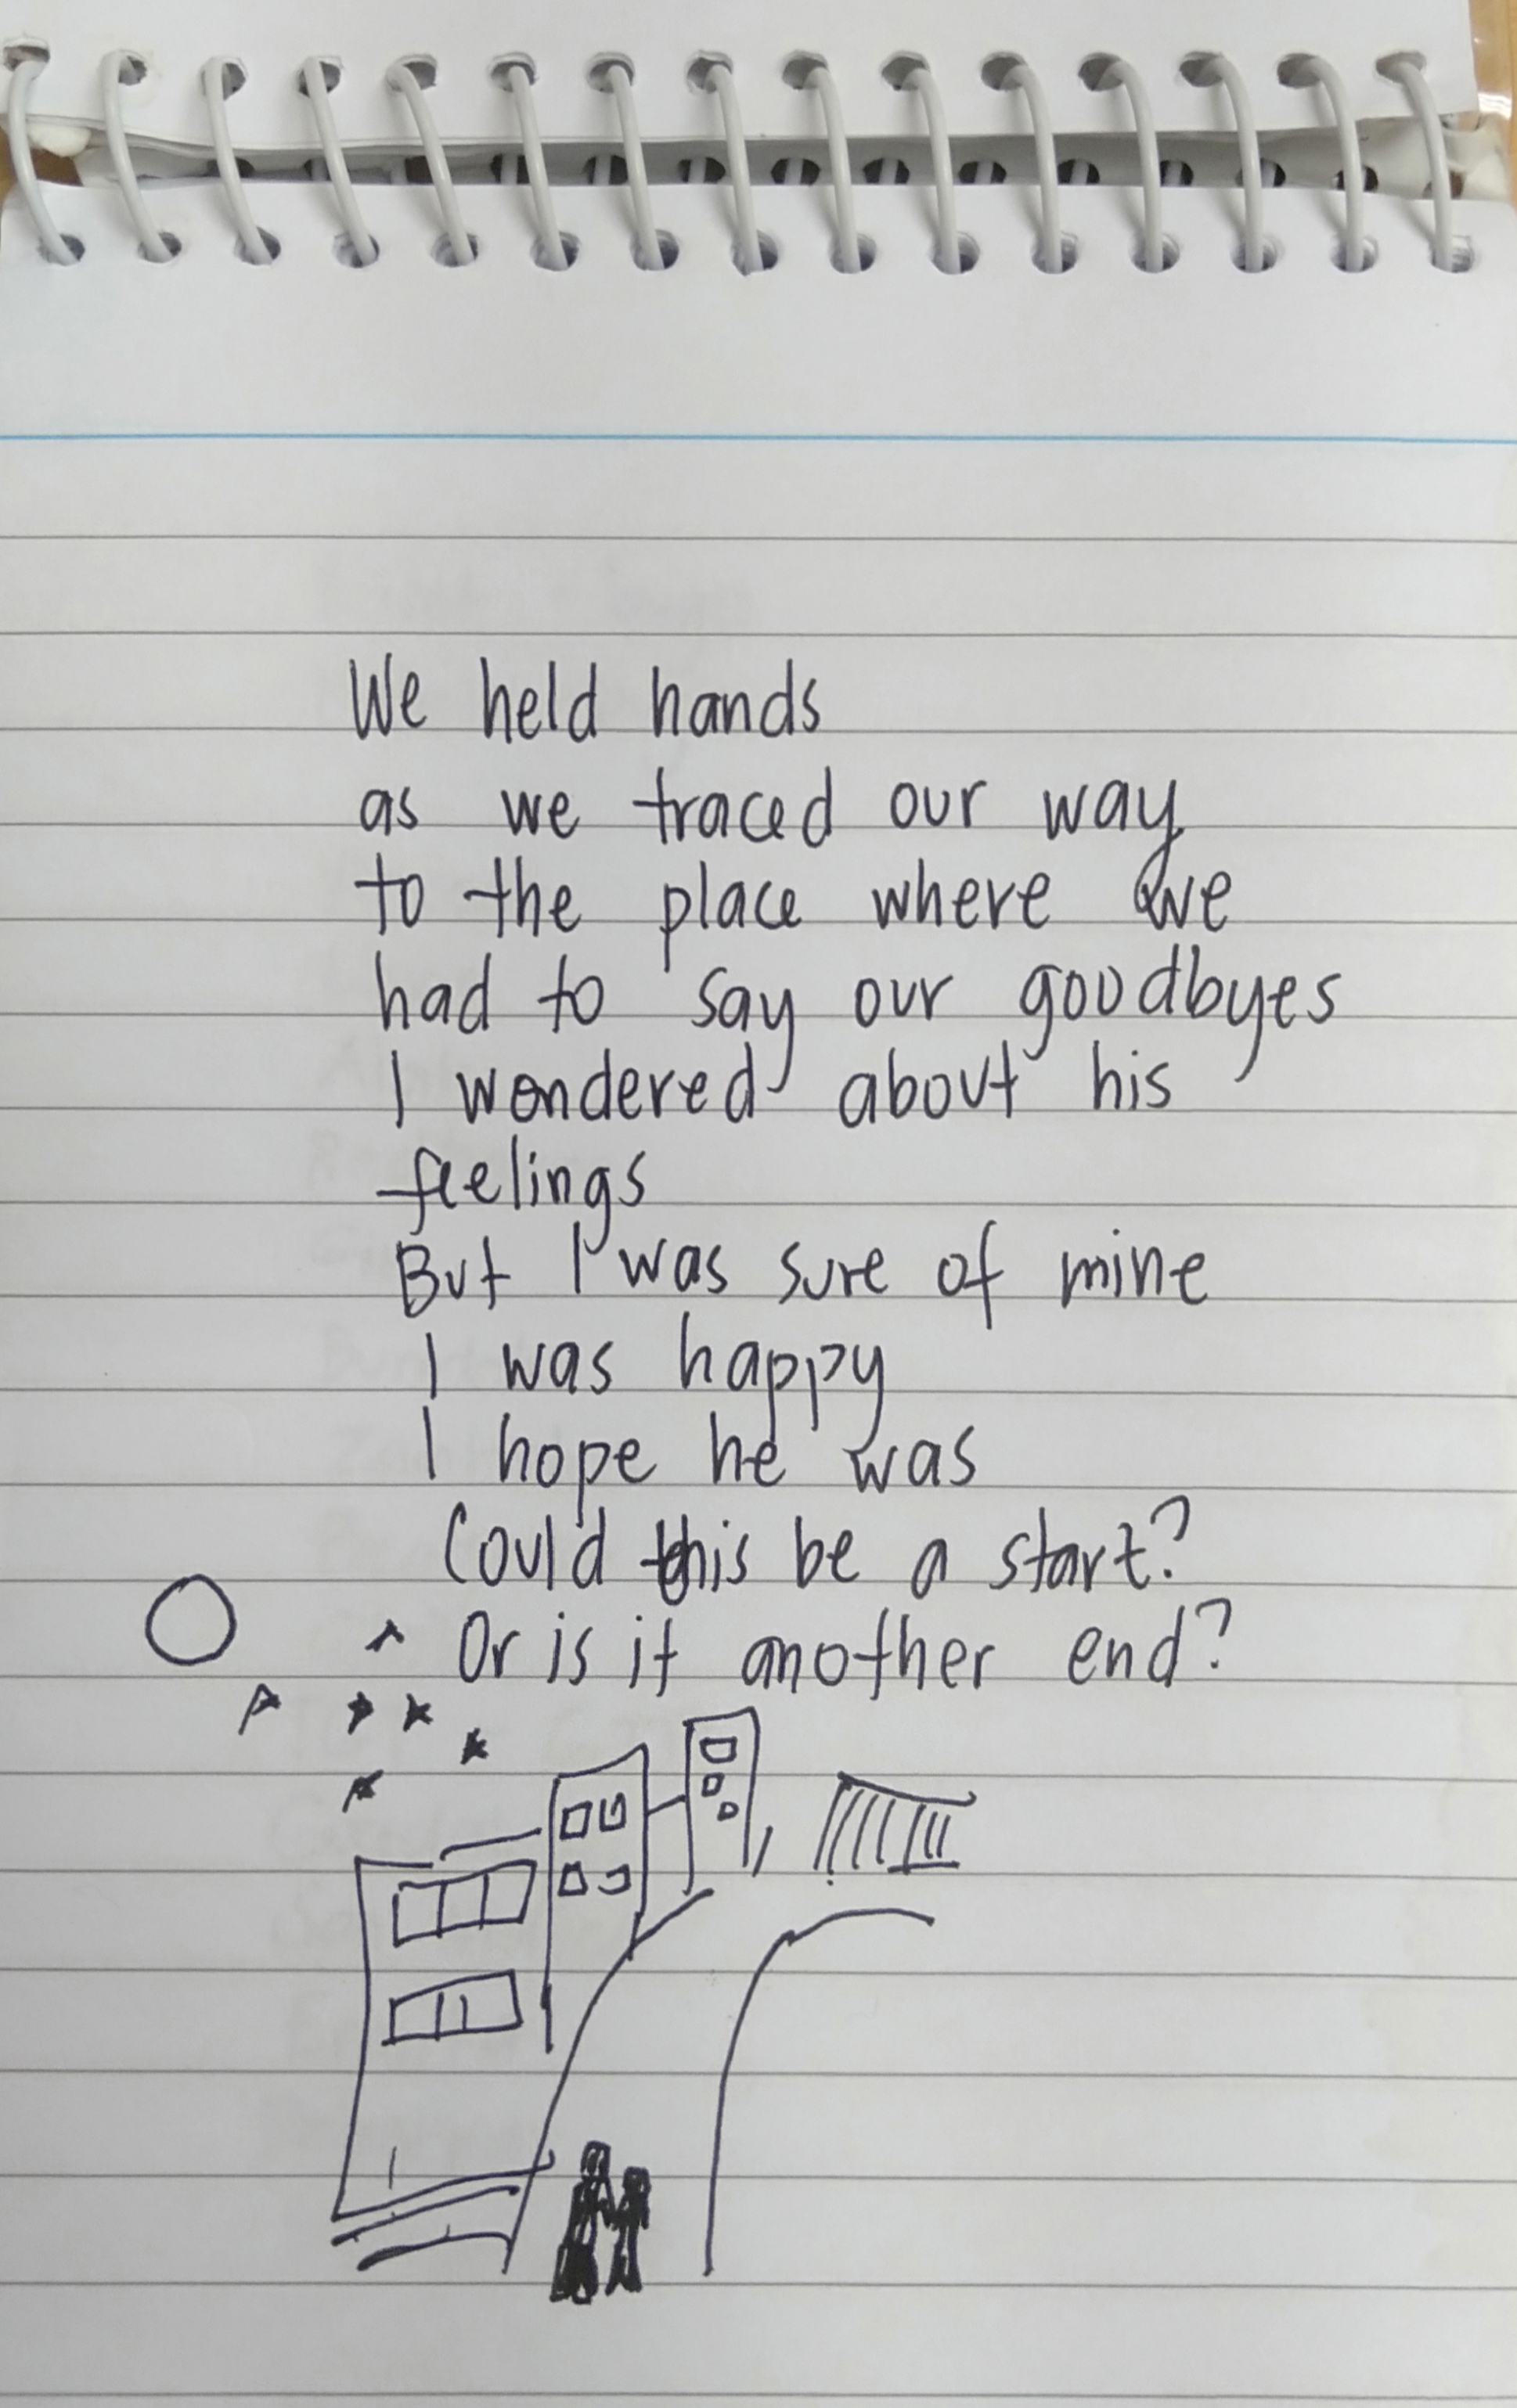 We held hands
as we traced our way
to the place where we
had to say our goodbyes
I wondered about his
feelings
But I was sure of mine
I was happy
I hope he was
Could this be a start?
Or is it another end?